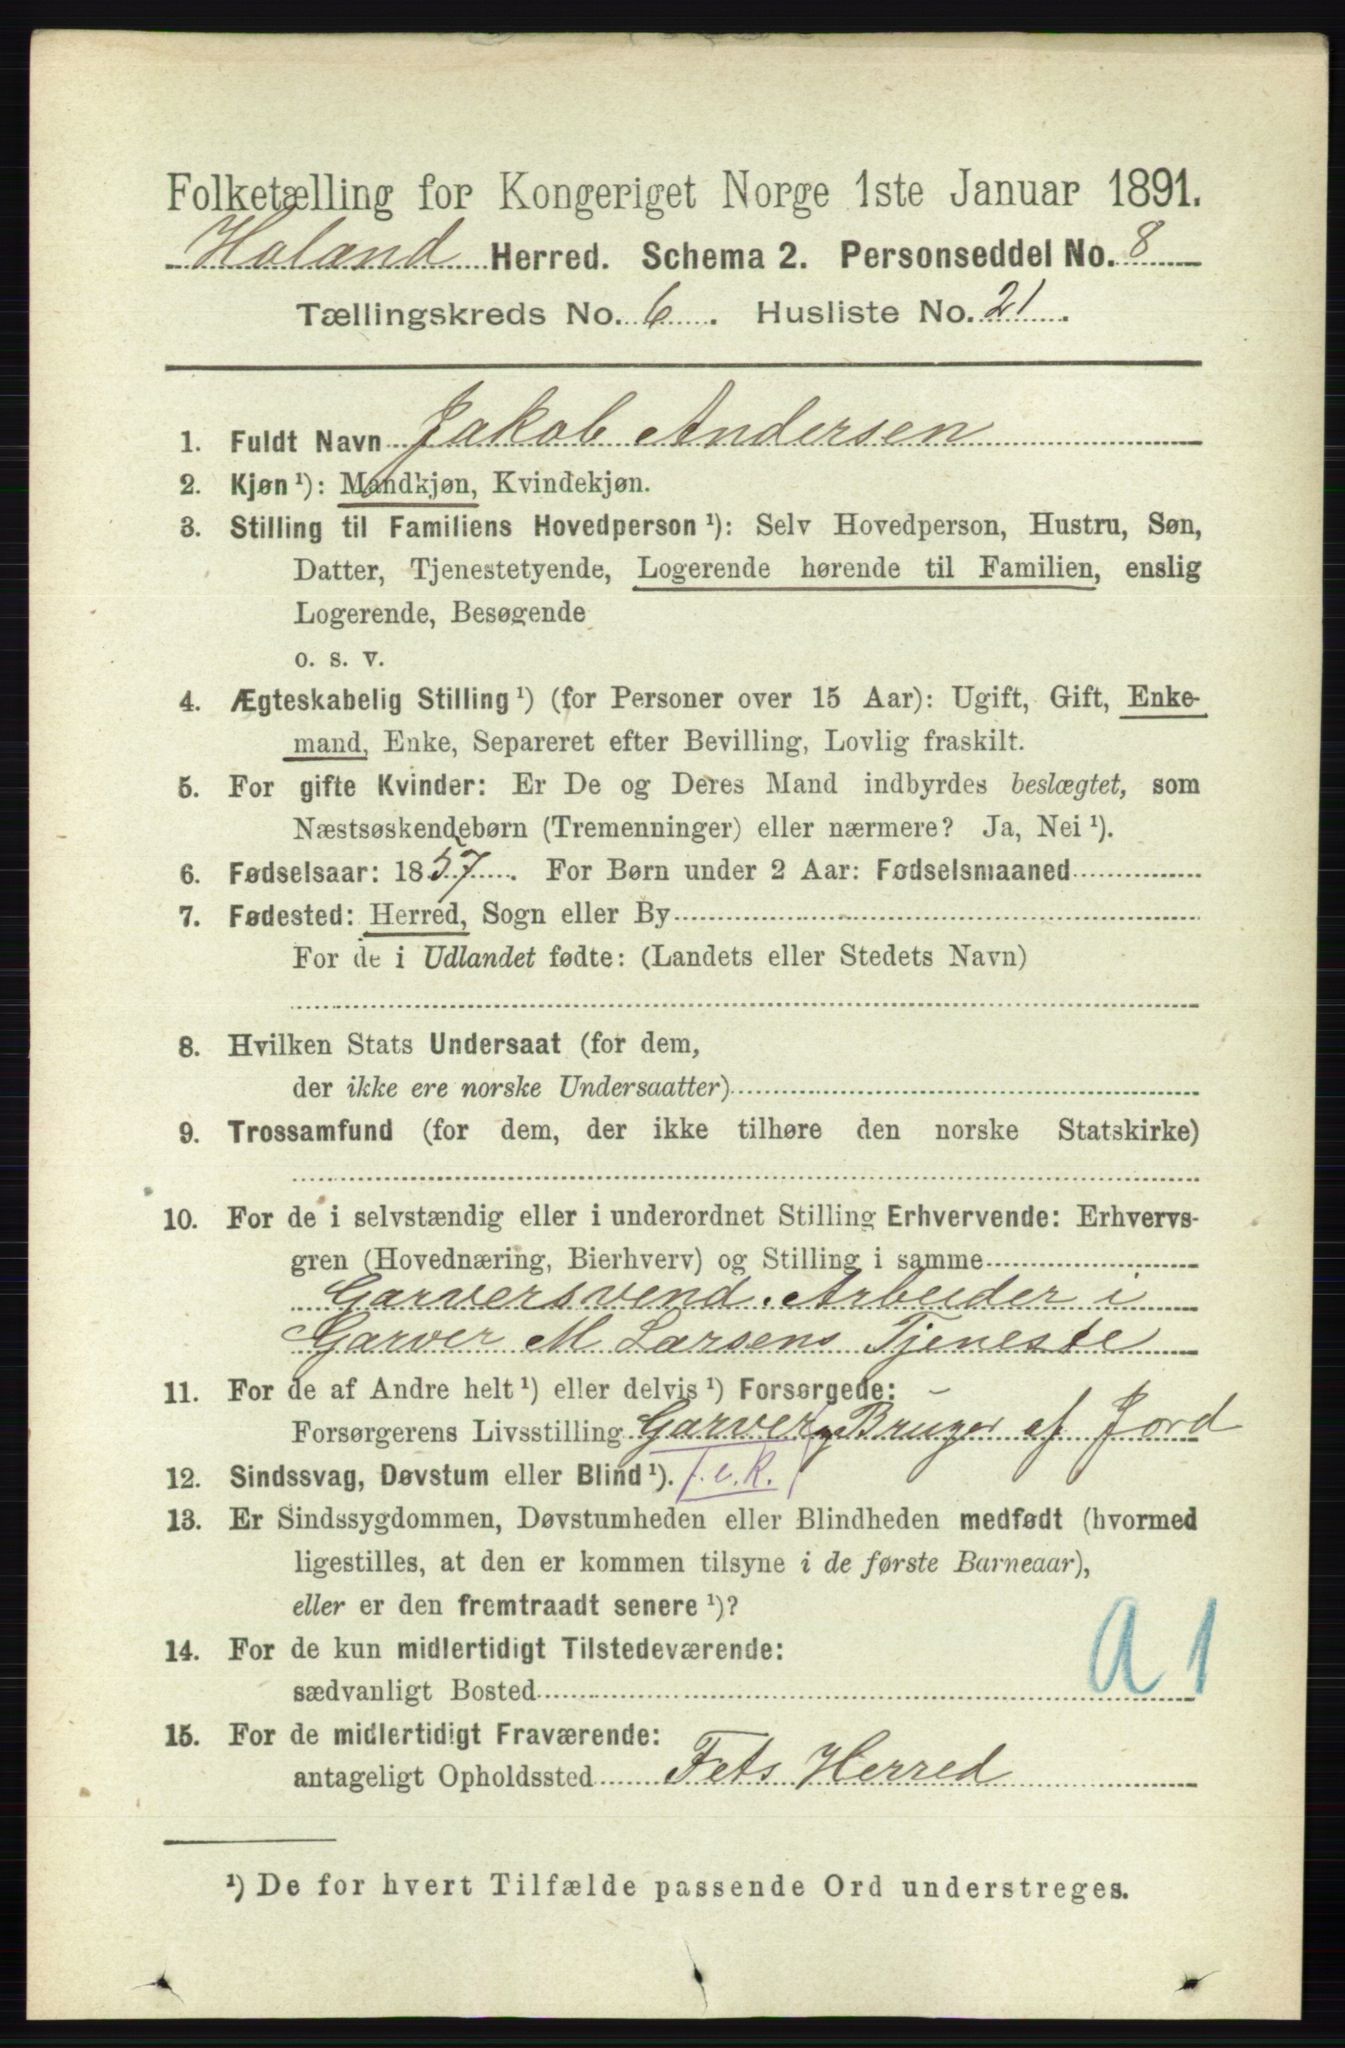 Folketælling for Kongeriget Norge 1ste Januar 1891.
Høland Herred. Schema 2. Personseddel No. 8
Tællingskreds No. 6. Husliste No. 21.
1. Fuldt Navn Jakob Andersen
2. Kjøn ¹): Mandkjøn, Kvindekjøn.
3. Stilling til Familiens Hovedperson ¹): Selv Hovedperson, Hustru, Søn,
Datter, Tjenestetyende, Logerende hørende til Familien, enslig
Logerende, Besøgende
o. s. v.
4. Ægteskabelig Stilling ¹) (for Personer over 15 Aar): Ugift, Gift, Enke-
mand, Enke, Separeret efter Bevilling, Lovlig fraskilt.
5. For gifte Kvinder: Er De og Deres Mand indbyrdes beslægtet, som
Næstsøskendebørn (Tremenninger) eller nærmere? Ja, Nei ¹).
6. Fødselsaar: 1857. For Børn under 2 Aar: Fødselsmaaned
7. Fødested: Herred, Sogn eller By
For de i Udlandet fødte: (Landets eller Stedets Navn)
8. Hvilken Stats Undersaat (for dem,
der ikke ere norske Undersaatter)
9. Trossamfund (for dem, der ikke tilhøre den norske Statskirke)
10. For de i selvstændig eller i underordnet Stilling Erhvervende: Erhvervs-
gren (Hovednæring, Bierhverv) og Stilling i samme
Garversvend. Arbeider i
Garver M Larsens Tjeneste
11. For de af Andre helt ¹) eller delvis ¹) Forsørgede:
Forsørgerens Livsstilling Garver Bruger af Jord
12. Sindssvag, Døvstum eller Blind ¹).
13. Er Sindssygdommen, Døvstumheden eller Blindheden medfødt (hvormed
ligestilles, at den er kommen tilsyne i de første Barneaar),
eller er den fremtraadt senere ¹)?
14. For de kun midlertidigt Tilstedeværende:
sædvanligt Bosted
a 1
15. For de midlertidigt Fraværende:
antageligt Opholdssted Fets Herred
¹) De for hvert Tilfælde passende Ord understreges.